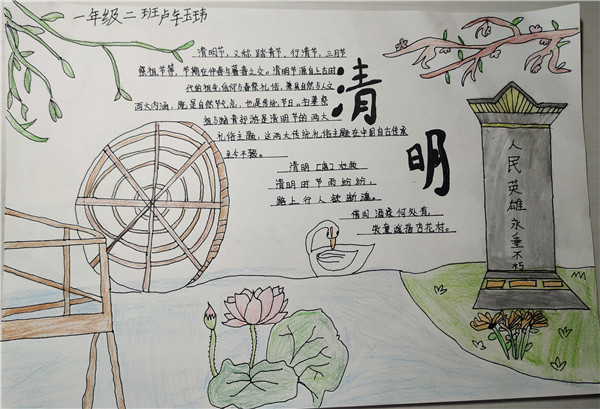 一年级二班卢
清明节，又称踏青节，行清节，三月节
祭祖节等，节期在仲春与暮春之交。清明节源自上古时
代的祖先信仰与春祭礼俗，兼具自然与人文
两大内涵，既是自然节气点，也是传统节日。扫墓祭
祖与踏青郊游是清明节的两大
礼俗主题，这两大传统礼俗主题在中国自古传承
至今不辍。
清明
清明 [唐] 杜牧
清明时节雨纷纷，
路上行人欲断魂。
借问酒家何处有，
牧童遥指杏花村。
人民英雄永垂不朽